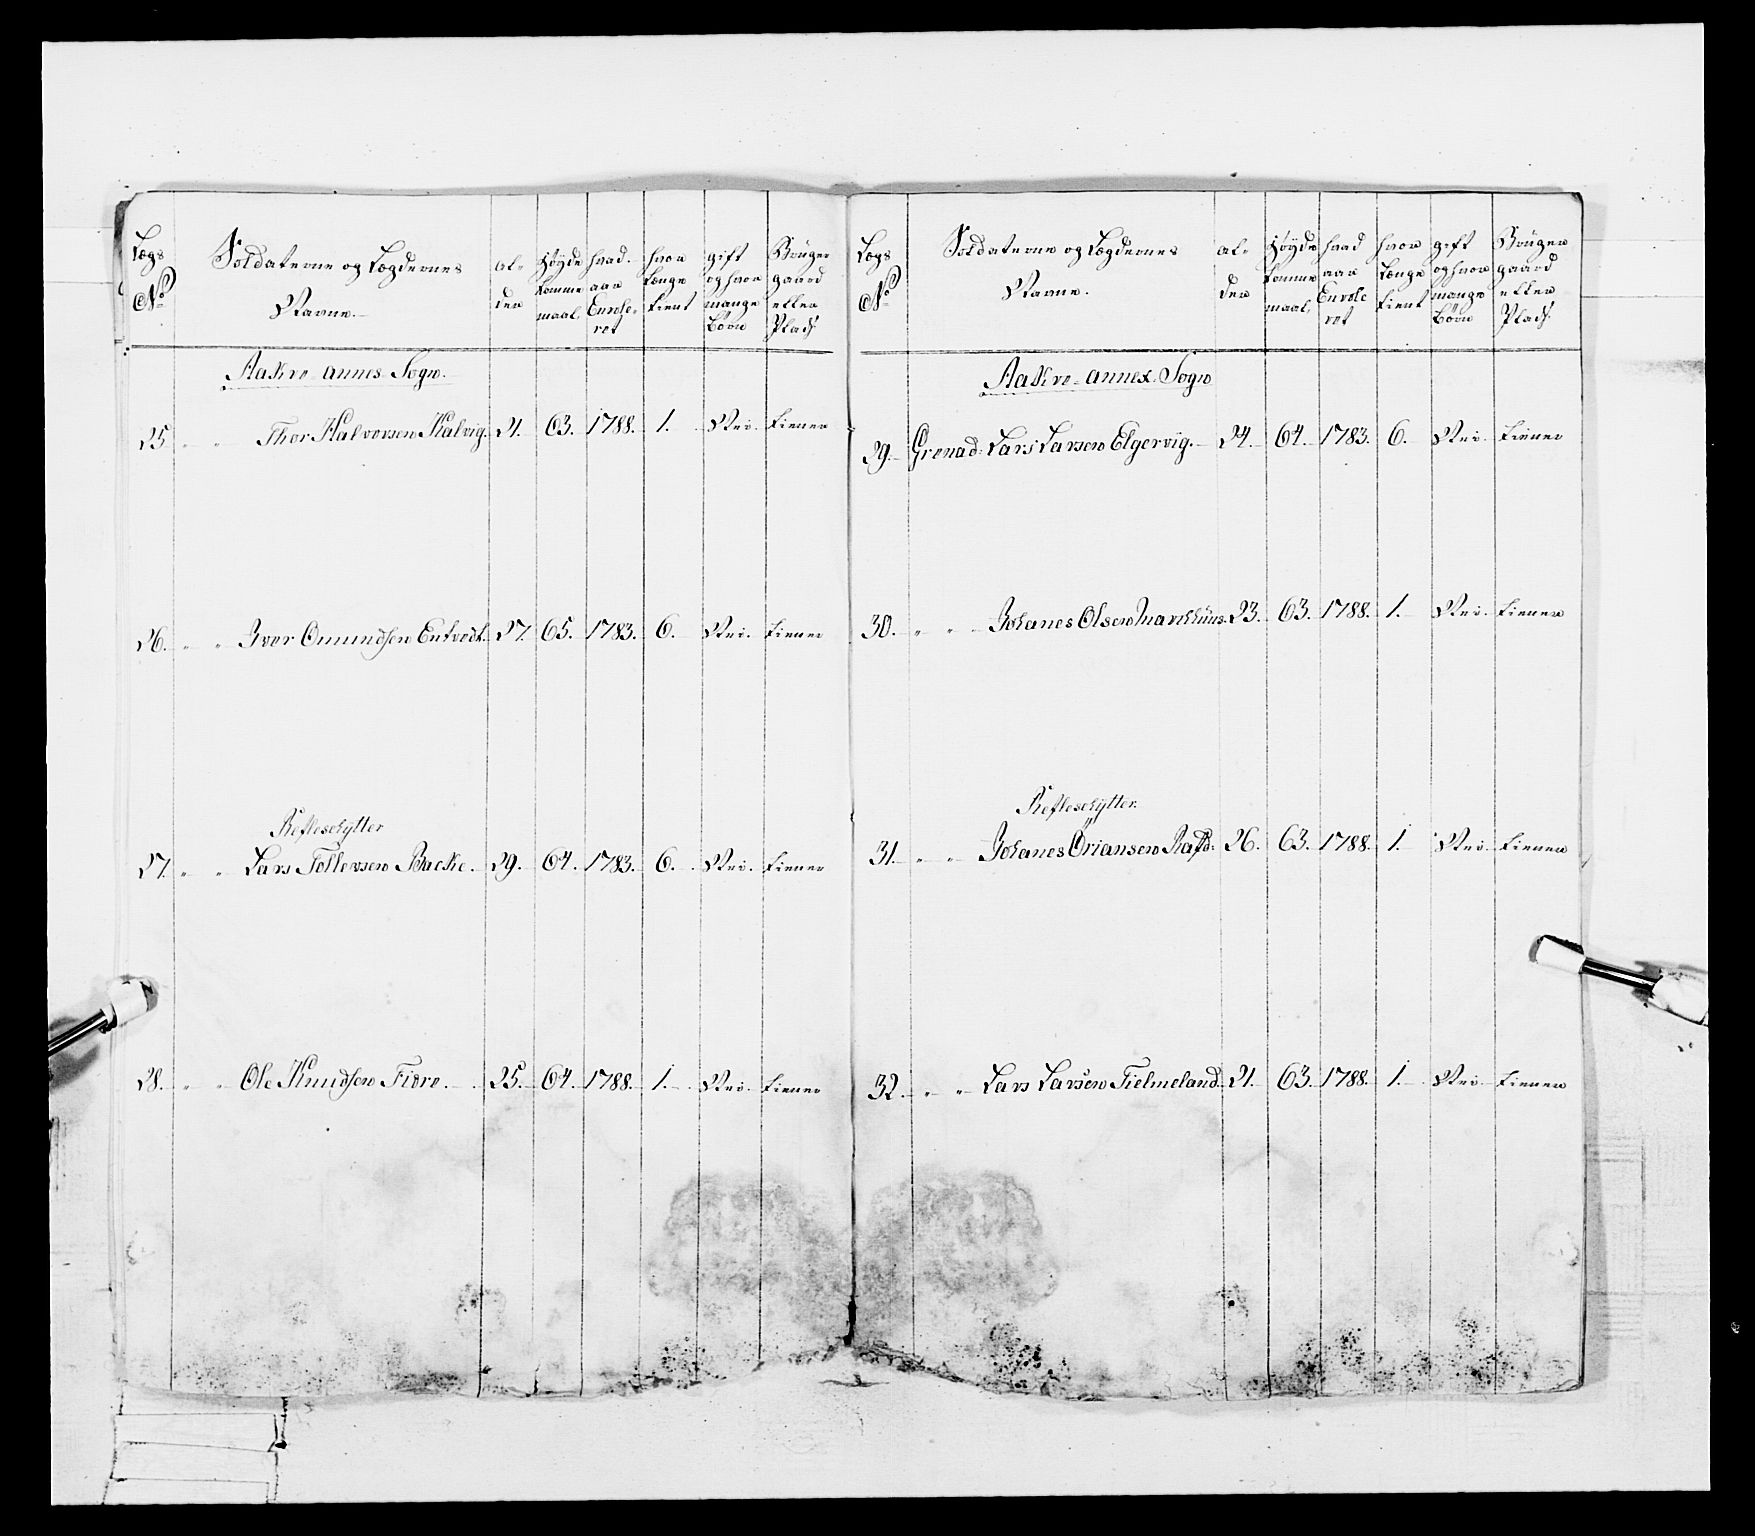 Lægs No
Soldaterne og Lægdernes Navne.
al- der
Høyde komme maal.
hvad aar Enrole- ret
hvor længe tient
gift og hvor mange børn
Bruger gaard eller Plads
Aakre annex Sogn.
25. " " Thor Halvorsen Kalvig. 21. 63. 1788. 1. Nei. tiener
26. " " Iver Omundsen 27. 65. 1783. 6. Nei. tiener
Refleschÿtter
27. " " Lars Tollevsen Backe. 29. 64. 1783. 6. Nei. tiener
28. " " Ole Knudsen Fiære. 25. 64. 1788. 1. Nei. tiener
Lægs No
Soldaterne og Lægdernes Navne.
al- der
Høyde komme maal.
hvad aar Enrole ret
hvor længe tient
gift og hvor mange børn
Bruger gaard eller Plads.
Aakre annex Sogn
29. Grenad: Lars Larsen Elgervig. 24. 64. 1783. 6. Nei. tiener
30. " " Johanes Olsen 23. 63. 1788. 1. Nei. tiener
Refleschÿtter.
31. " " Johanes 26. 63. 1788. 1. Nei. tiener
32. " " Lars Larsen Tielmeland. 21. 63. 1788. 1. Nei. tiener